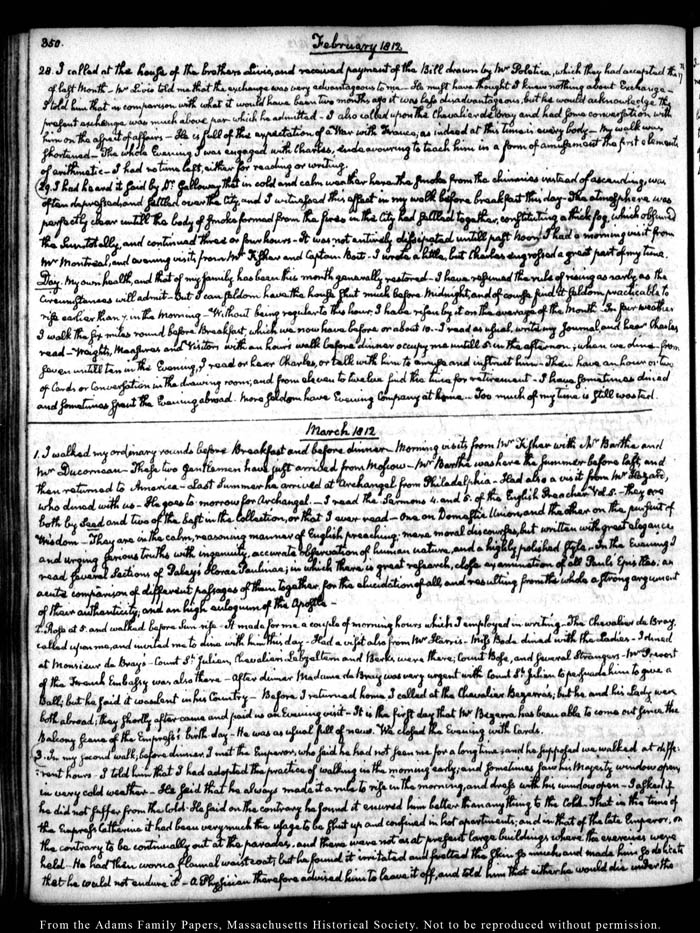 350.
February 1812
28. I called at the house of the brothers Livio, and received payment of the Bill drawn by Mr Poletica, which they had accepted the 17th
of last Month — Mr Livio told me that the exchange was very advantageous to me — He must have thought I knew nothing about Exchange —
I told him that in comparison with what it would have been two months ago it was less disadvantageous, but he would acknowledge the
present exchange was much above par which he admitted — I also called upon the Chevalier de Bray and had some conversation with
him on the aspect of affairs — He is full of the expectation of a War with France, as indeed at this time is every body — My walk was
shortened — The whole Evening I was engaged with Charles, endeavouring to teach him in a form of amusement the first elements
of arithmetic — I had no time left, either for reading or writing.
29. I had heard it said by Dr Galloway that in cold and calm weather here the smoke from the chimnies instead of ascending, was
often depressed and settled over the City, and I witnessed this effect in my walk before breakfast this day — The atmosphere was
perfectly clear untill the body of smoke formed from the fires in the City had settled together, constituting a thick fog, which obscured
the Sun totally, and continued three or four hours — It was not entirely dissipated untill past Noon. I had a morning visit from
Mr Montreal, and evening visits from Mr Fisher and Captain Bates. I wrote a little, but Charles engrossed a great part of my time.
Day. My own health, and that of my family has been this month generally restored — I have resumed the rule of rising as early, as the
circumstances will admit — But I can seldom have the house shut much before Midnight, and of course find it seldom practicable to
rise earlier than 7. in the Morning — Without being regular to this hour I have risen by it on the average of the Month — In fair weather
I walk the six miles round before Breakfast, which we now have before or about 10. — I read as usual, write my Journal, and hear Charles
read — Weights, Measures and Visitors with an hour's walk before dinner occupy me untill 5. in the afternoon; when we dine — from
seven untill ten in the Evening, I read or hear Charles, or talk with him to amuse and instruct him — Then have an hour or two
of Cards or Conversation in the drawing room; and from eleven to twelve find the time for retirement — I have sometimes dined
and sometimes spent the Evening abroad. More seldom have Evening Company at home — Too much of my time is still wasted.
March 1812
1. I walked my ordinary rounds before Breakfast and before dinner — Morning visits from Mr Fisher with Mr Barthe and
Mr Ducorneau — These two Gentlemen have just arrived from Moscow — Mr Barthe was here the Summer before last, and
then returned to America — Last Summer he arrived at Archangel from Philadelphia — Had also a visit from Mr
who dined with us — He goes to morrow for Archangel. — I read the Sermons 4. and 5. of the English Preacher Vol. 5. — they are
both by Seed and two of the best in the Collection, or that I ever read — One on Domestic Union, and the other on the pursuit of
Wisdom — They are in the calm, reasoning manner of English preaching; mere moral discourses, but written with great elegance
and urging serious truths with ingenuity, accurate observation of human nature, and a highly polished style. In the Evening I
read several Sections of Paley's Horae Paulinae; in which there is great research, close examination of all Paul's Epistles; an
acute comparison of different passages of them together, for the elucidation of all, and resulting from the whole a strong argument
of their authenticity, and an high eulogium of the Apostle —
2. Rose at 5. and walked before Sun rise — It made for me a couple of morning hours which I employed in writing — The Chevalier de Bray
called upon me, and invited me to dine with him this day — Had a visit also from Mr Harris. Miss Bode dined with the ladies — I dined
at Monsieur de Bray's — Count St Julien, Chevalier Labzeltern and Berks were there; Count Bose, and several Strangers — Mr Prevost
of the French Embassy was also there — After dinner Madame de Bray was very urgent with Count St Julien to persuade him to give a
Ball; but he said it was lent in his Country — Before I returned home I called at the Chevalier Bezerra's; but he and his Lady were
both abroad; they shortly after came and paid us an Evening visit — It is the first day that Mr Bezerra has been able to come out since the
Balcony scene of the Empress's birth day — He was as usual full of news. We closed the Evening with Cards.
3. In my second walk, before dinner, I met the Emperor, who said he had not seen me for a long time; and he supposed we walked at diffe-
rent hours — I told him that I had adopted the practice of walking in the morning early; and sometimes saw his Majesty's window open,
in very cold weather — He said that he always made it a rule to rise in the morning, and dress with his window open — I asked if
he did not suffer from the Cold. He said on the contrary he found it enured him better than any thing to the Cold. That in the time of
the Empress Catherine it had been very much the usage to be shut up and confined in hot apartments; and in that of the late Emperor, on
the contrary to be continually out at the parades, and there were not as at present large buildings where the exercises were
held. He had then worn a flannel waistcoat; but he found it irritated and fretted the skin so much, and made him so delicate
that he could not endure it — A Physician therefore advised him to leave it off, and told him that either he would die under the
From the Adams Family Papers, Massachusetts Historical Society. Not to be reproduced without permission.